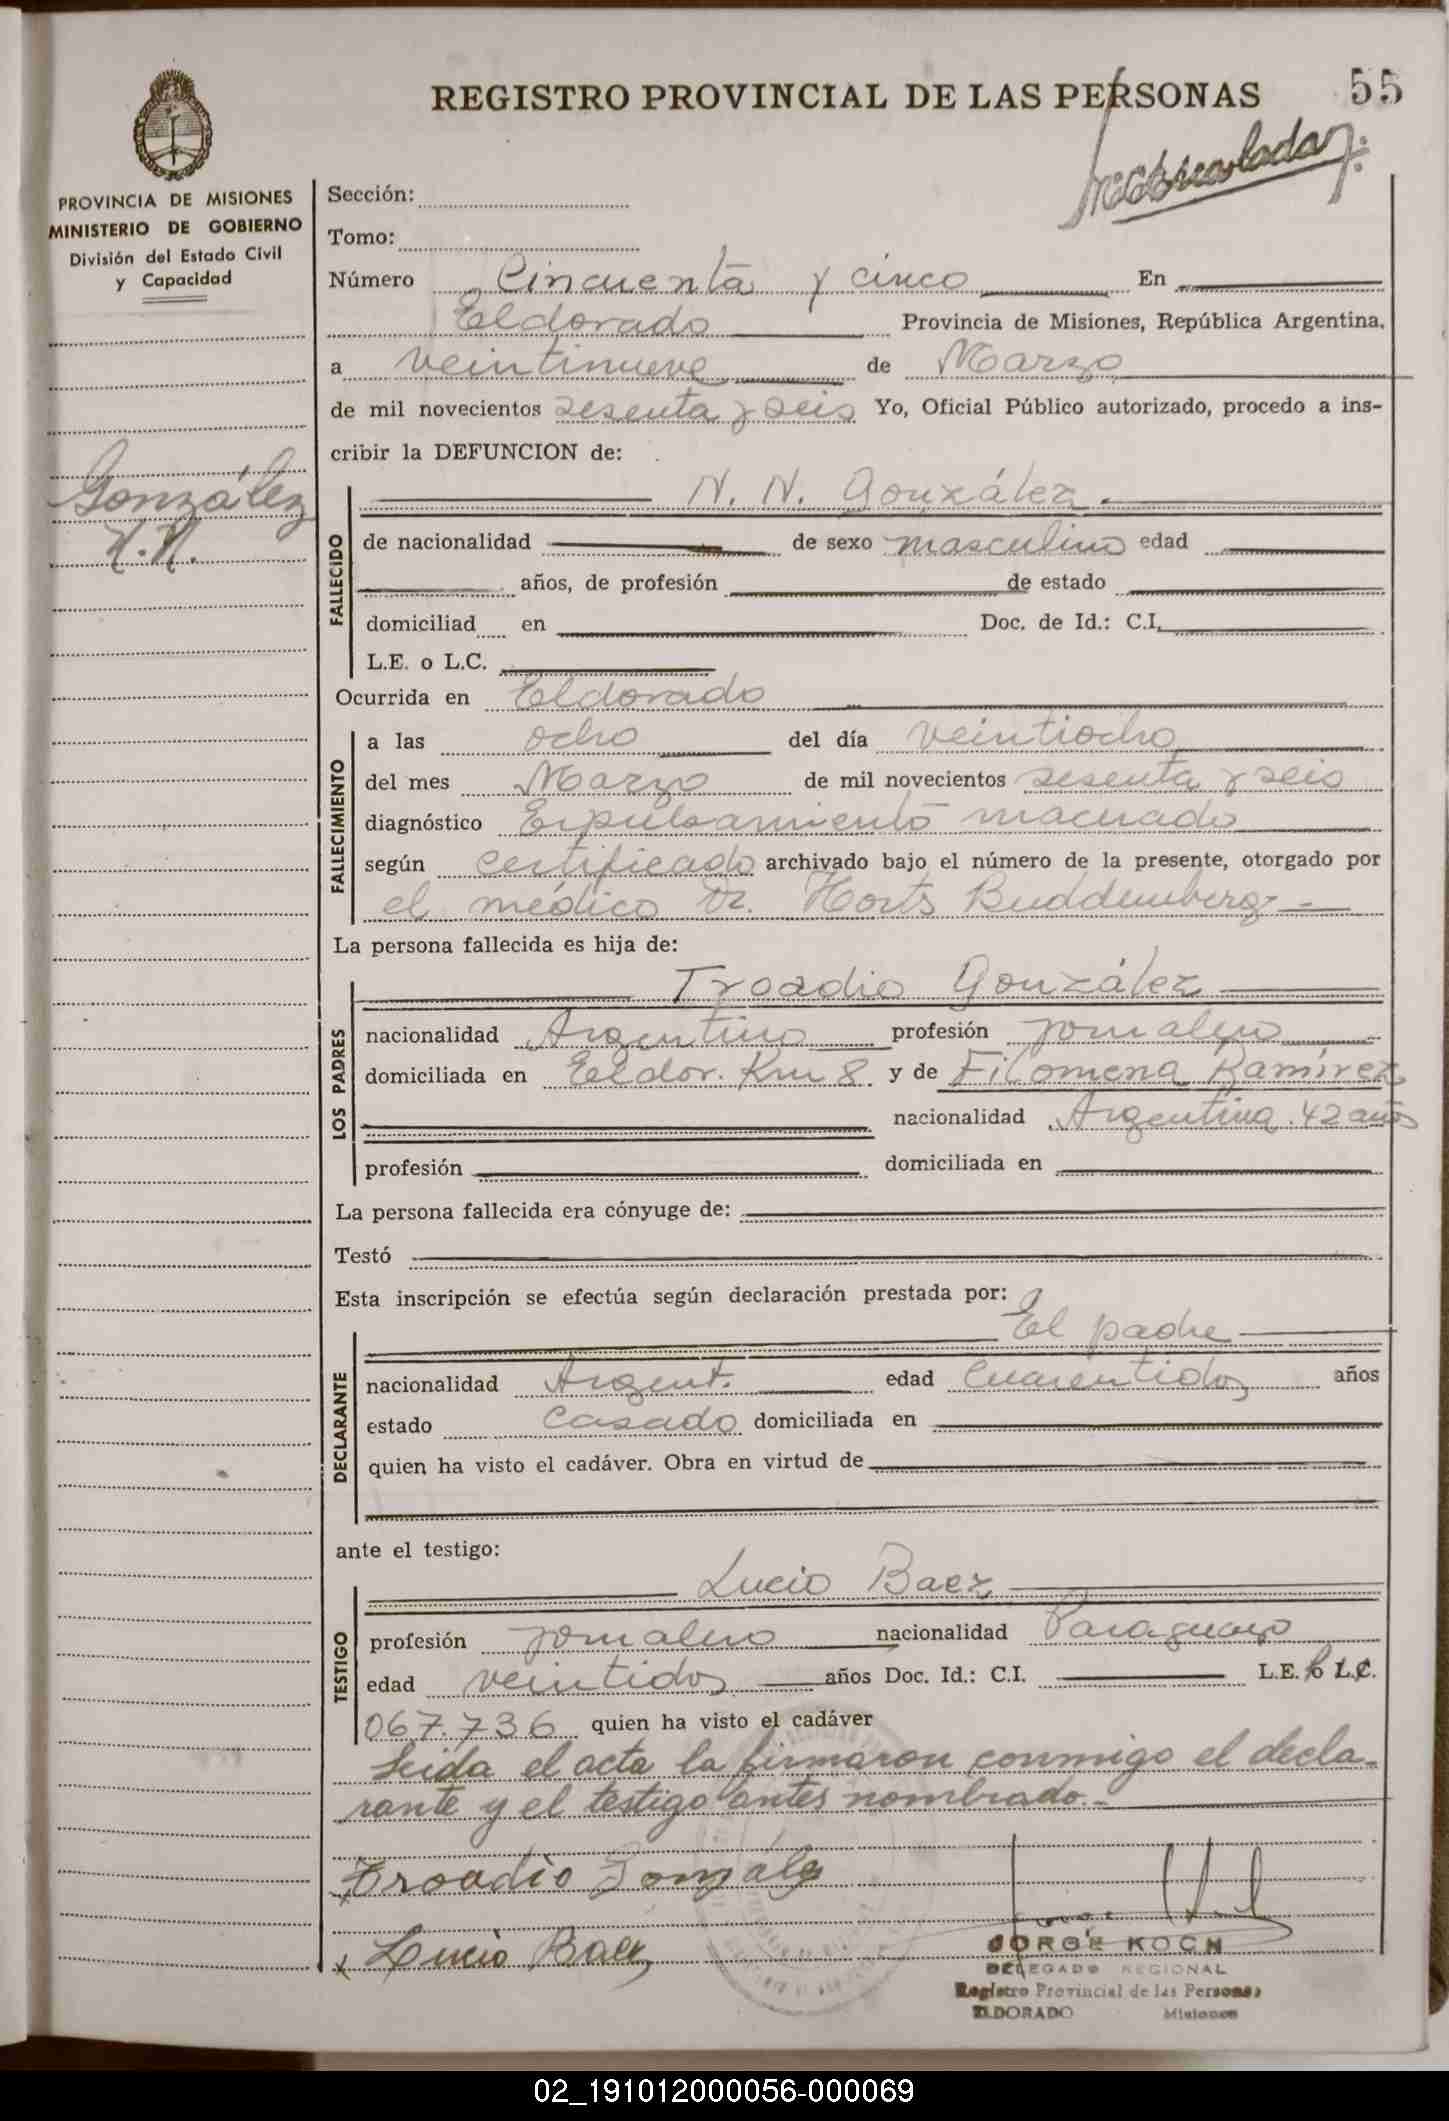 REGISTRO PROVINCIAL DE LAS PERSONAS
55
PROVINCIA DE MISIONES
MINISTERIO DE GOBIERNO
División del Estado Civil
y Capacidad
González
N.N.
Sección:
Tomo:
Número Cincuenta y cinco En
Eldorado Provincia de Misiones, República Argentina,
a veintinueve de Marzo
de mil novecientos sesenta y seis Yo, Oficial Público autorizado, procedo a ins-
cribir la DEFUNCION de:
N. N. González.
FALLECIDO
de nacionalidad de sexo masculino edad
años, de profesión de estado
domiciliad en Doc. de Id.: C.I.
L.E. o L.C.
Ocurrida en Eldorado
FALLECIMIENTO
a las ocho del día veintiocho
del mes Marzo de mil novecientos sesenta y seis
diagnóstico Expulsamiento macerado
según certificado archivado bajo el número de la presente, otorgado por
el médico Dr. Horts Buddemberg
La persona fallecida es hija de:
LOS PADRES
Troadio González
nacionalidad Argentino profesión jornalero
domiciliada en Eldor. Km 8 y de Filomena Ramírez
nacionalidad Argentina. 42 años
profesión domiciliada en
La persona fallecida era cónyuge de:
Testó
Esta inscripción se efectúa según declaración prestada por:
DECLARANTE
El padre
nacionalidad Argent. edad Cuarentidos años
estado casado domiciliada en
quien ha visto el cadáver. Obra en virtud de
ante el testigo:
TESTIGO
Lucio Baez
profesión jornalero nacionalidad Paraguayo
edad veintidos años Doc. Id.: C.I. L.E. o L.C.
067.736 quien ha visto el cadáver
Leida el acta la firmaron conmigo el decla-
rante y el testigo antes nombrado.-
Troadio Gonzále
x Lucio Baez
JORGE KOCH
DELEGADO REGIONAL
Registro Provincial de las Personas
ELDORADO Misiones
02_191012000056-000069